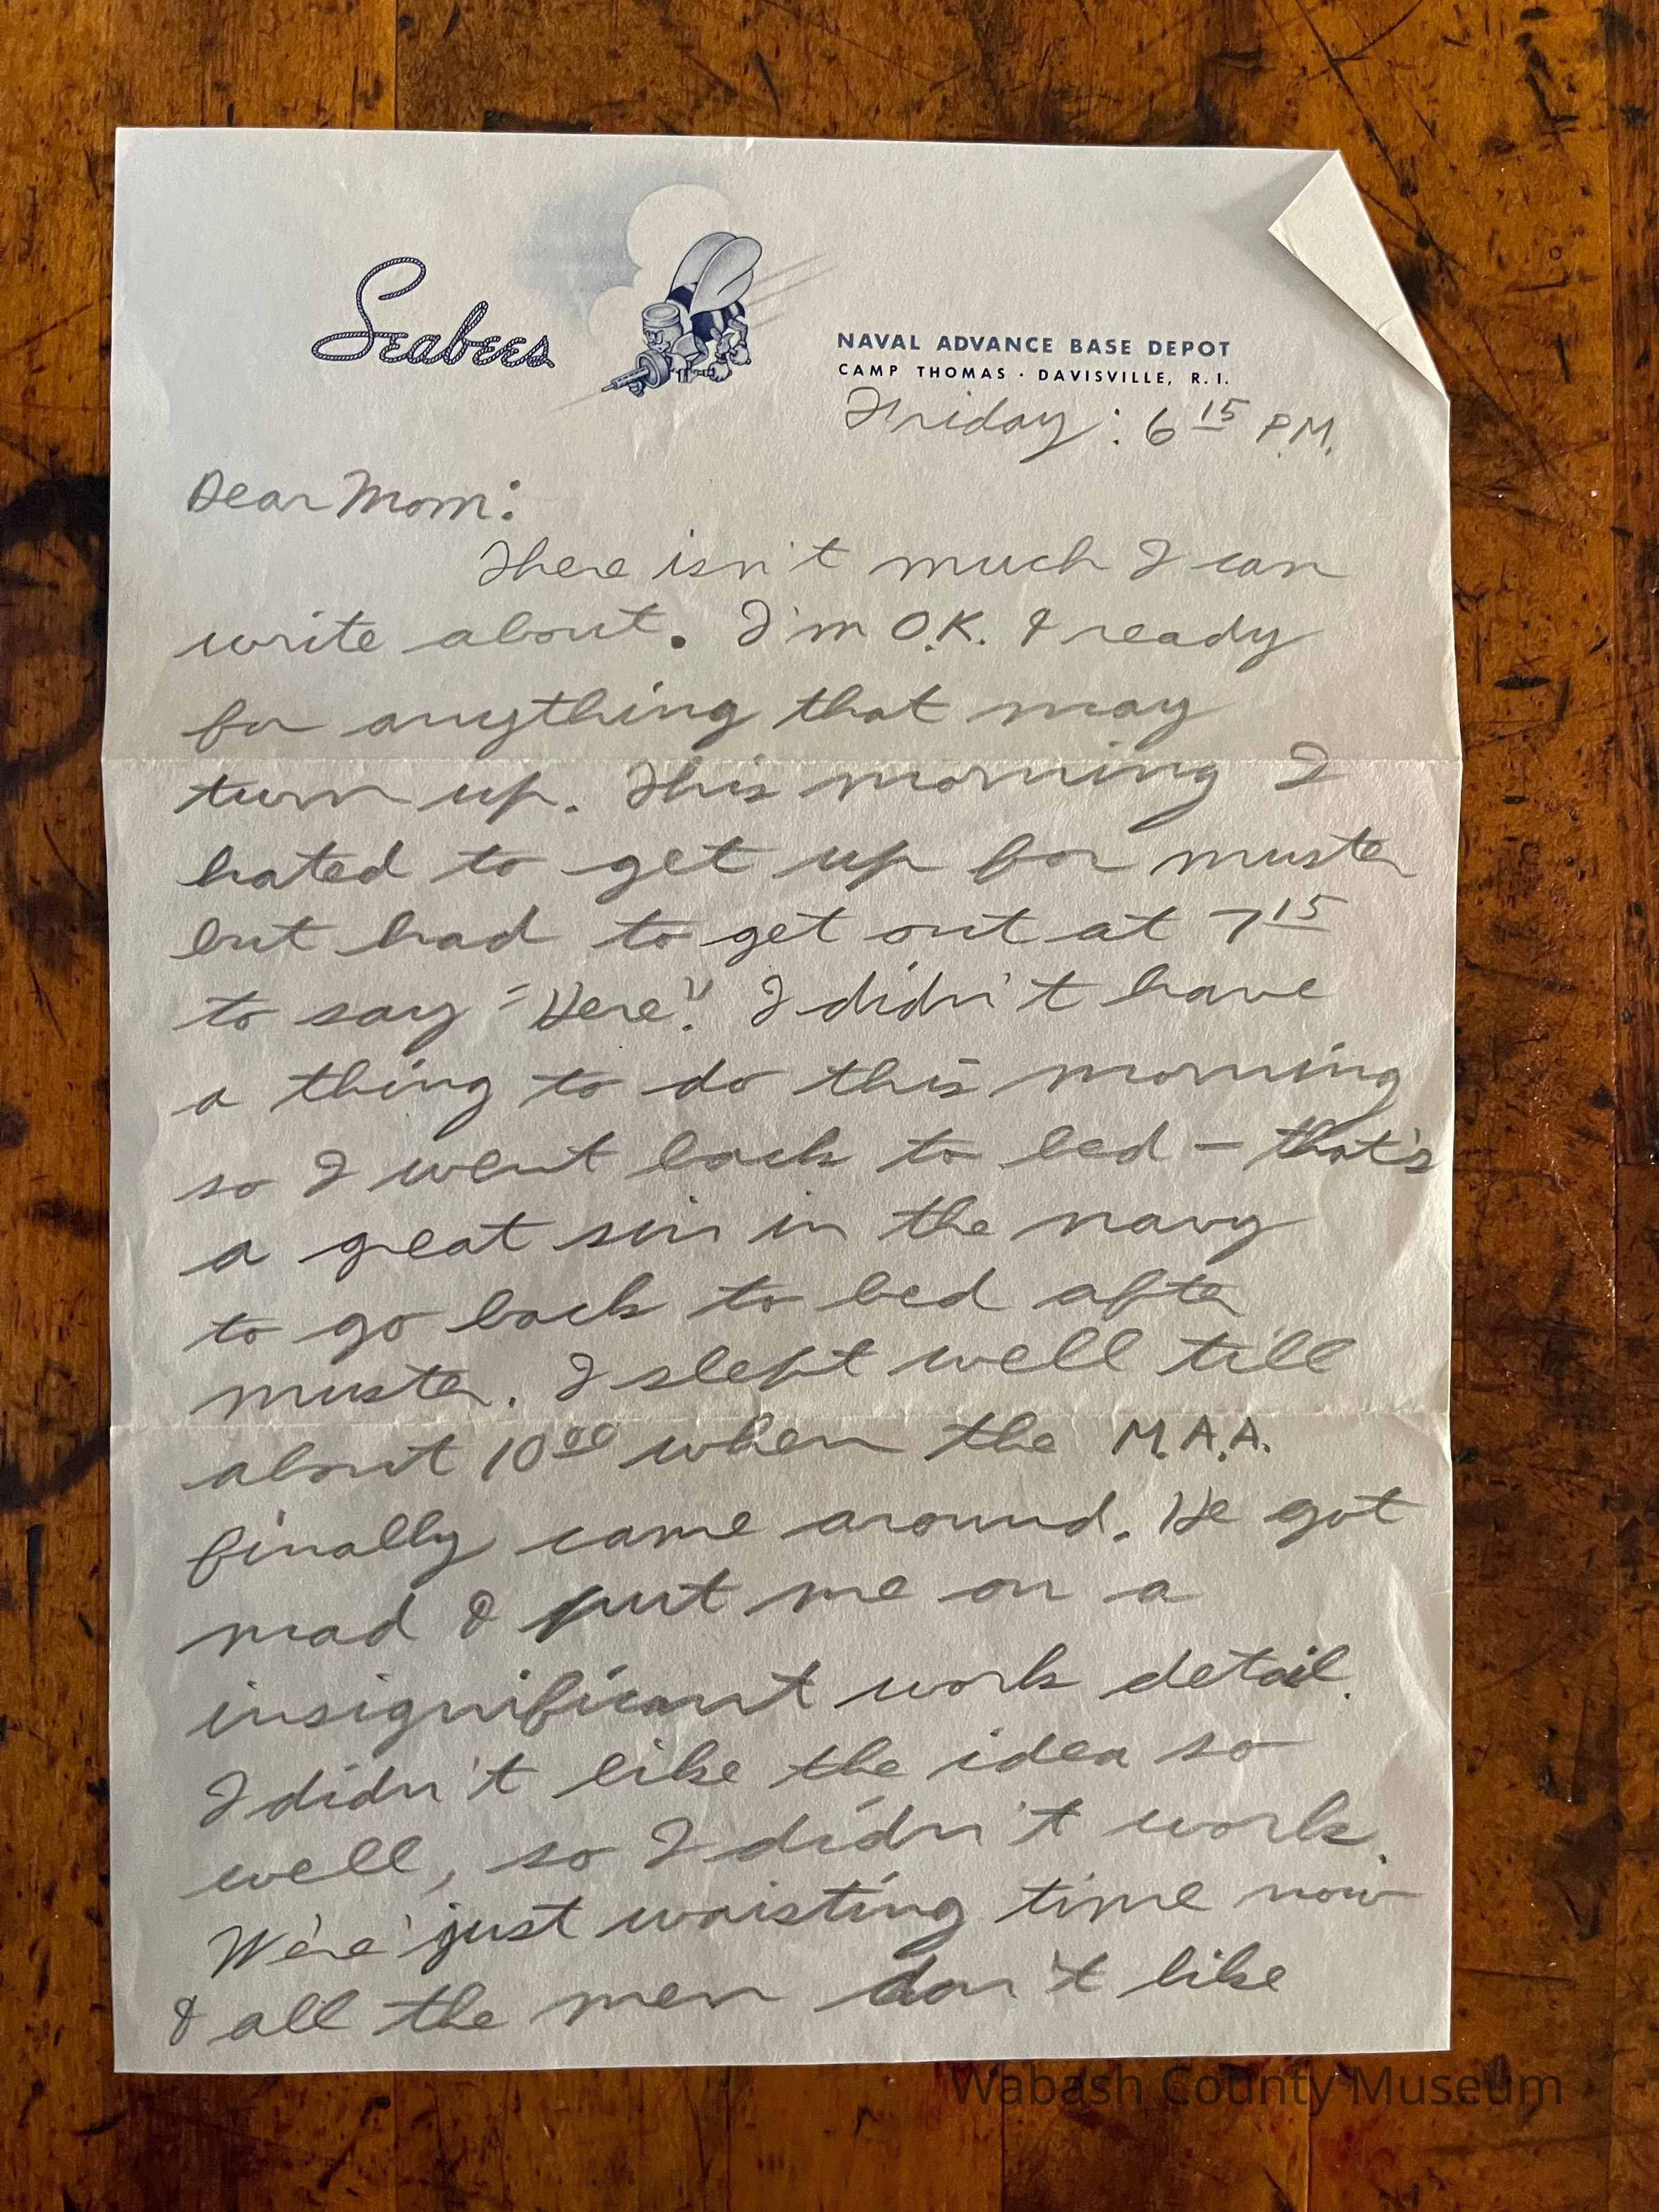 Seabees
NAVAL ADVANCE BASE DEPOT
CAMP THOMAS · DAVISVILLE, R.I.
Friday: 6 15 P.M.
Dear Mom:
There isn't much I can
write about. I'm O.K. & ready
for anything that may
turn up. This morning I
hated to get up for muster
but had to get out at 7 15
to say "Here". I didn't have
a thing to do this morning
so I went back to bed – that's
a great sin in the navy
to go back to bed after
muster. I slept well till
about 10 00 when the M.A.A.
finally came around. He got
mad & put me on a
insignificant work detail.
I didn't like the idea so
well, so I didn't work.
We're just waisting time now
& all the men don't like
Wabash County Museum